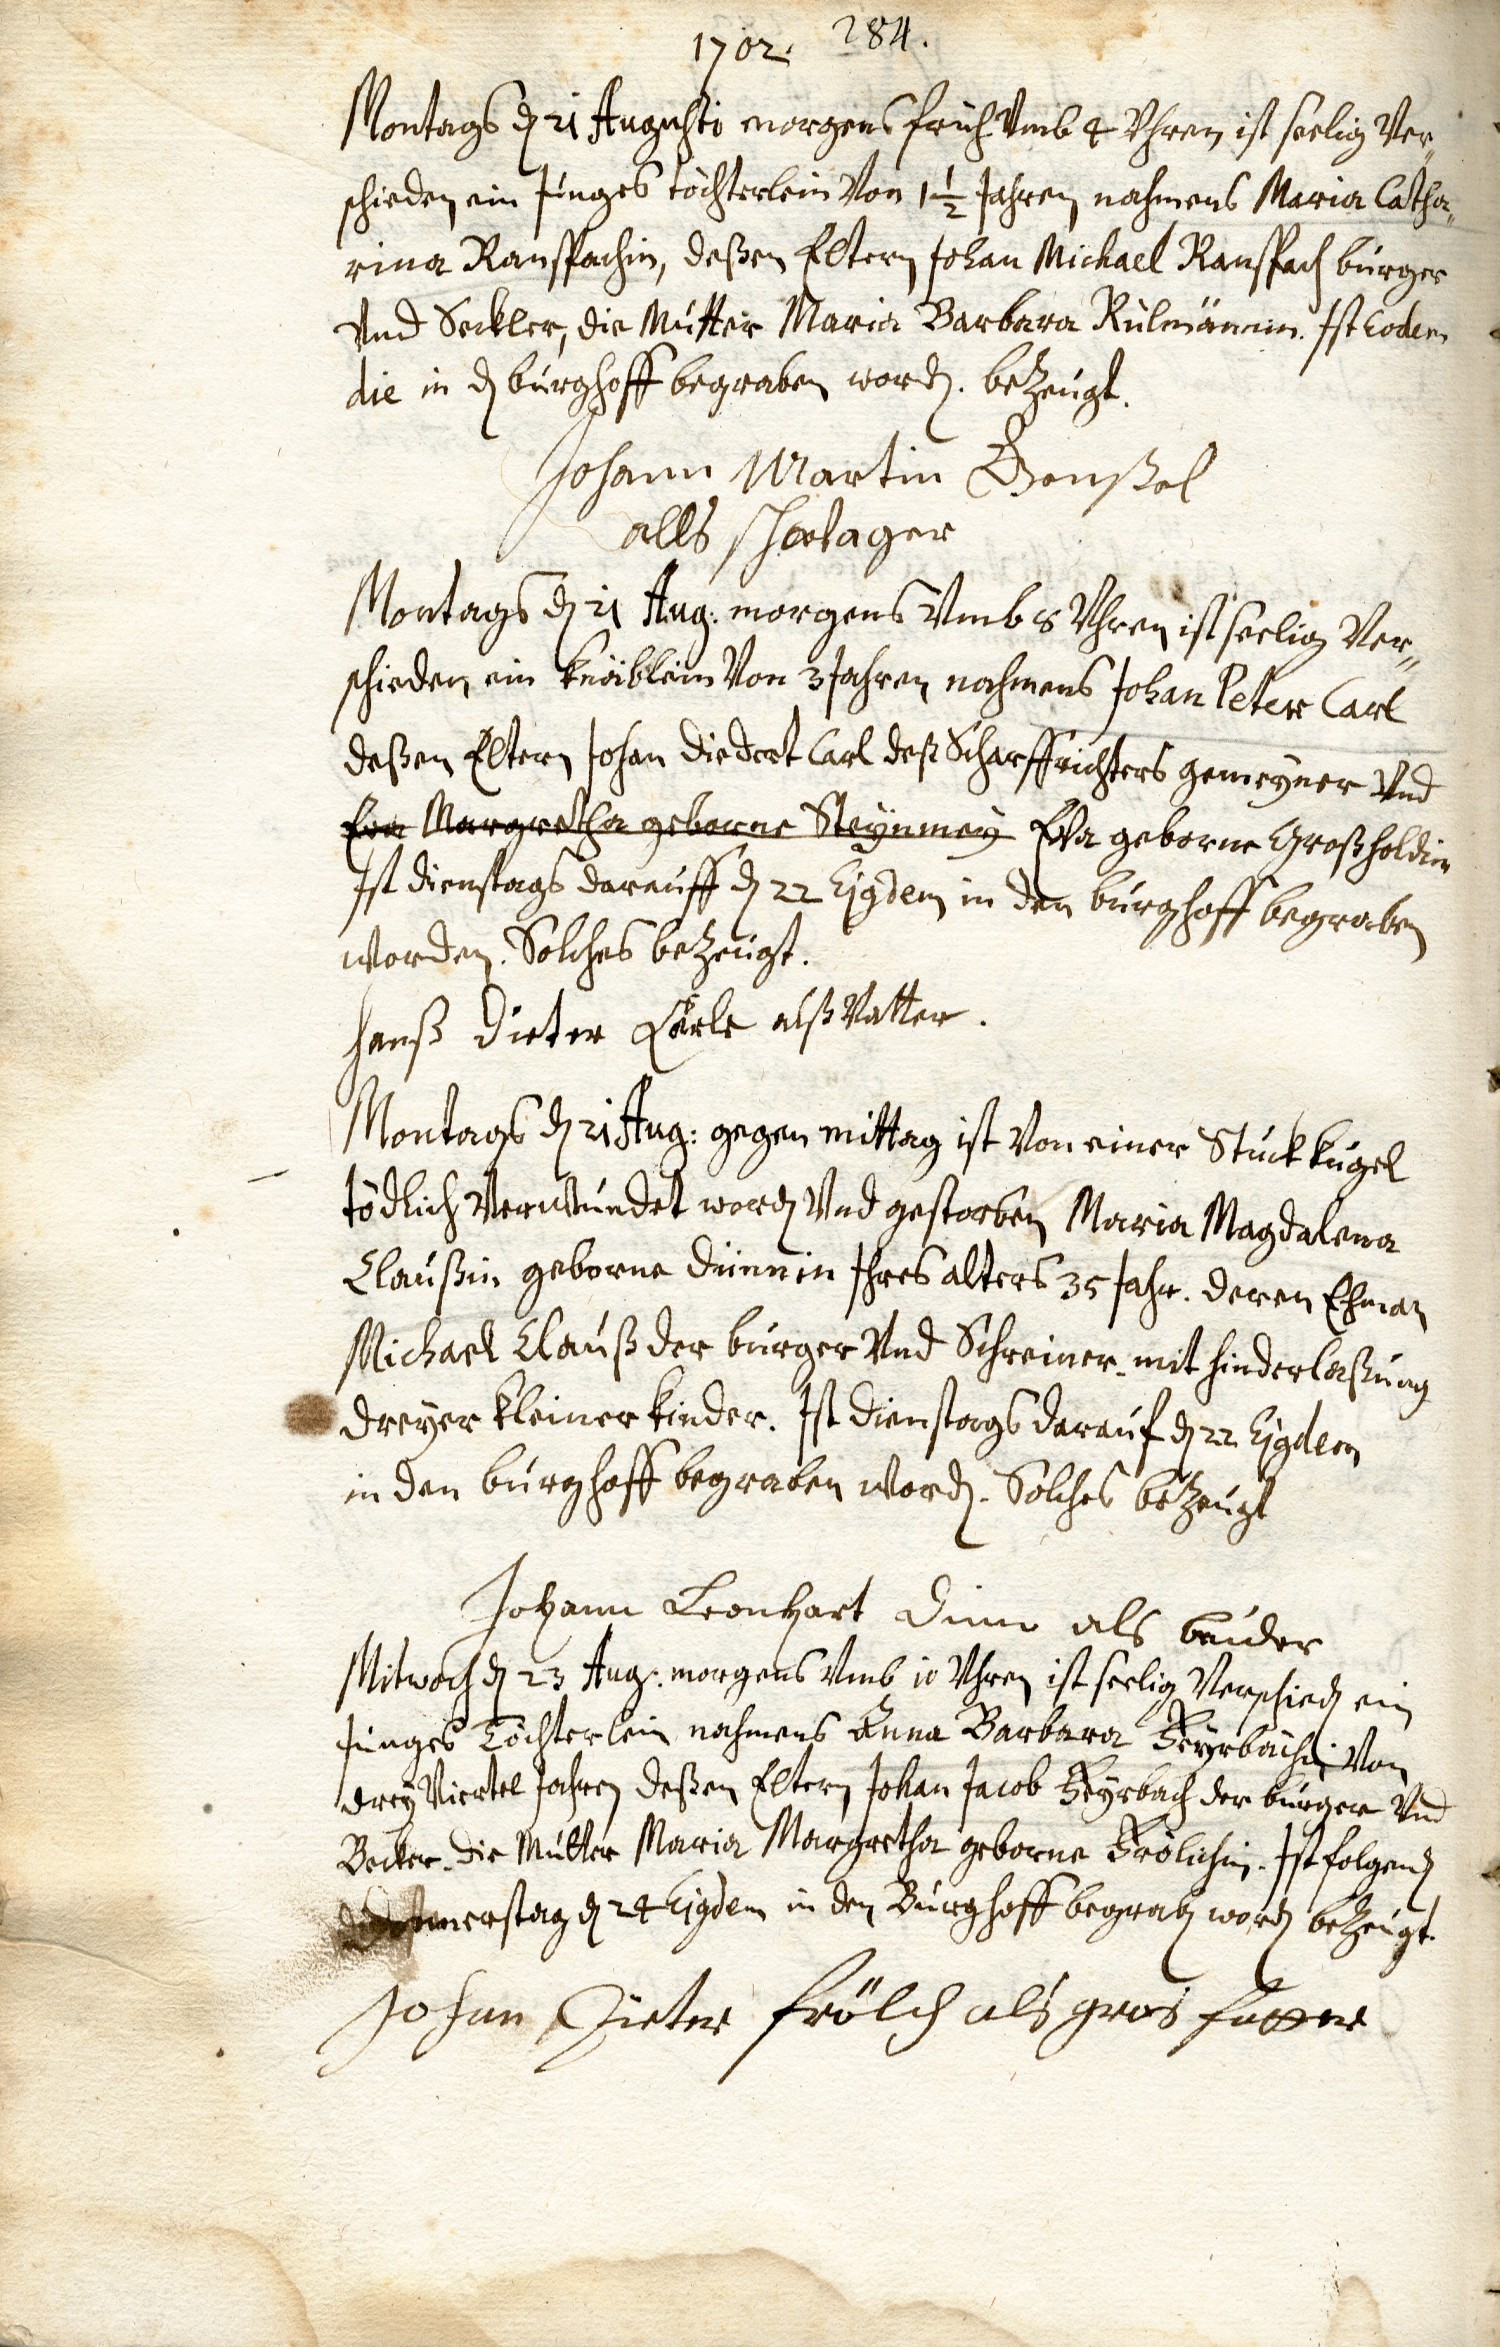 1702. 284.
Montags d 21 Augusti morgens früh Vmb 4 Vhren ist seelig Ver„
schieden ein Junges töchterlein Von 1½ Jahren nahmens Maria Catha„
rina Ranspachin, deßen Eltern Johan Michael Ranspach burger
Vnd Seckler, die Mutter Maria Barbara Rülmännin. Ist eodem
die in d burghoff begraben word. bezeugt.
Johann Martin
alls
Montags d 21 Aug: morgens Vmb 8 Vhren ist seelig Ver„
schieden ein knäblein Von 3 Jahren nahmens Johan Peter Carl
deßen Eltern Johan Diedert Carl deß Scharffrichters gemeyner Vnd
Eva Margretha geborne Steynmey Eva geborne Großholdin
Ist dienstags darauff d 22 Ejgdem in den burghoff begraben
worden. Solches bezeugt.
Hanß Dieter Carle alß Vatter.
Montags d 21 Aug: gegen mittag ist Von einer Stuckkugel
tödlich Verwundet word Vnd gestorben Maria Magdalena
Claußin geborne Dünnin Ihres alters 35 Jahr. deren Ehman
Michael Clauß der burger Vnd Schreiner. mit hinderlaßung
dreyer kleiner kinder. Ist dienstags darauf d 22 Ejgdem
in den burghoff begraben word. Solches bezeugt
Johann Leonhart Dünn als bruder
Mitwoch d 23 Aug: morgens Vmb 10 Vhren ist seelig Verschied ein
Junges Töchterlein nahmens Anna Barbara Feyrbachin Von
drey Viertel Jahren deßen Eltern Johan Jacob Feyrbach der burger Vnd
Becker. die Mutter Maria Margretha geborne Frölichin. Ist folgend
Donnerstag d 24 Ejgdem in den Burghoff begrab word bezeugt.
Johan Dieter Frölch als gros